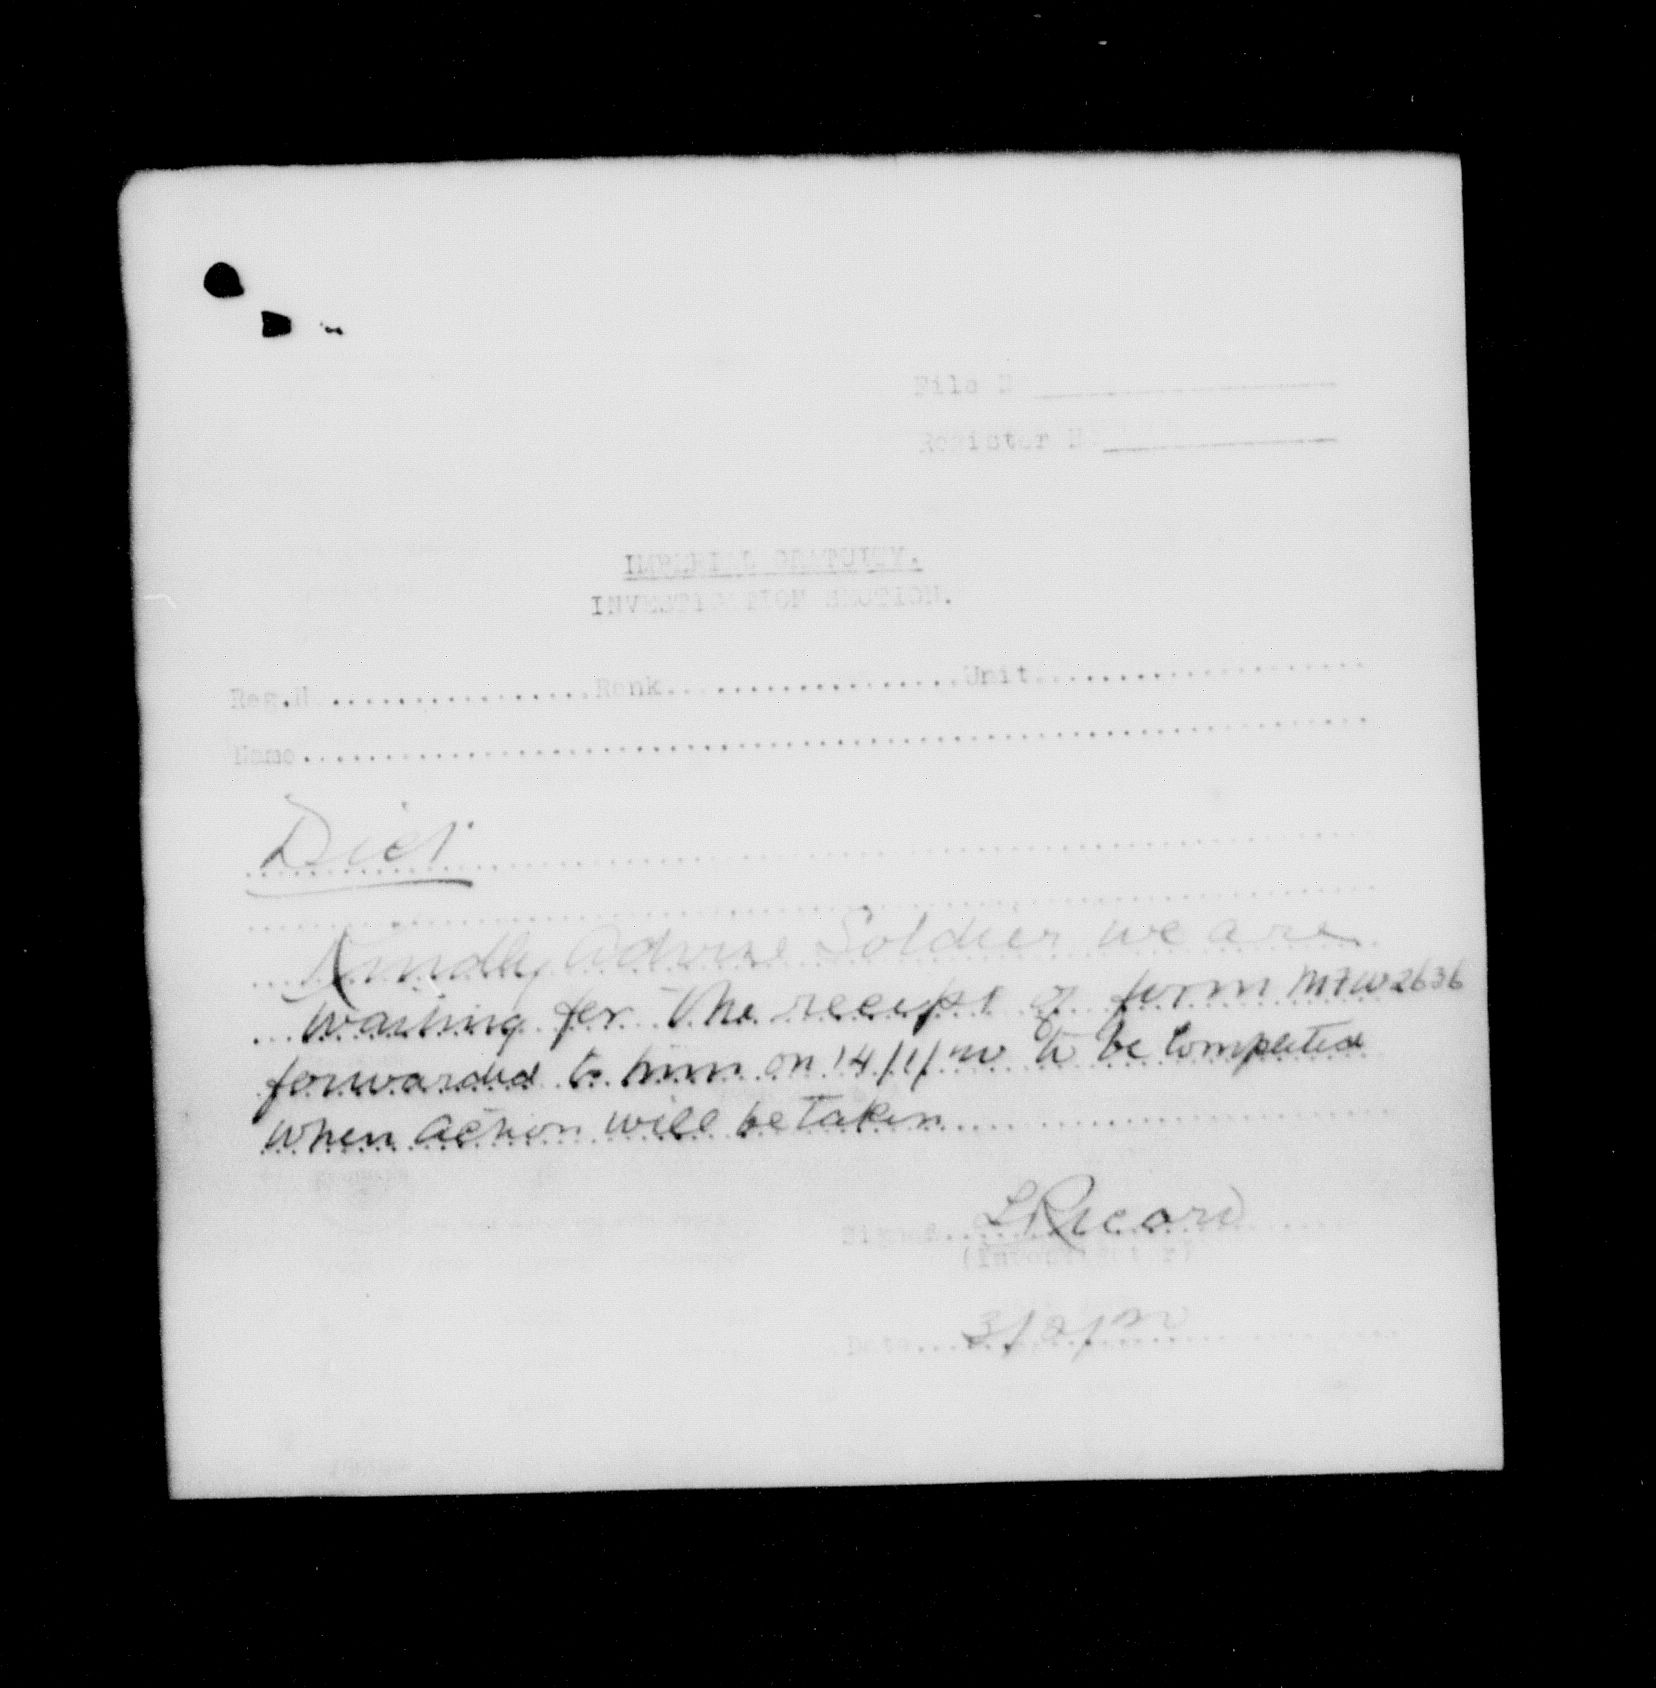 File N ____________
Register N ____________
IMPERIAL GRATUITY.
INVESTIGATION SECTION.
Reg.N ................Rank..................Unit....................
Name................................................................
Dict
Kindly advise Soldier we are
waiting for the receipt of form MFW2636
forwarded to him on 14/1/20 to be completed
when action will be taken
Signed... L Ricard
(Investigator)
Date... 3/2/20